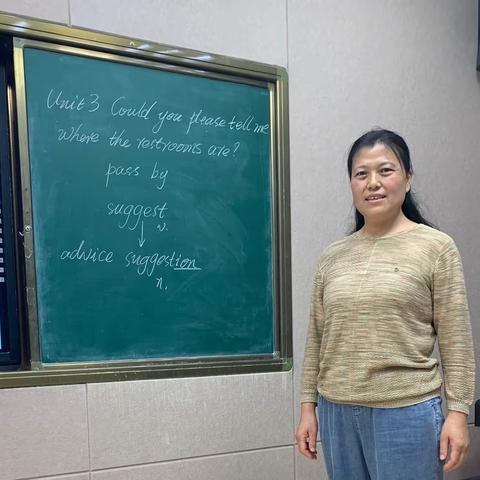 Unit 3 Could you please tell me
where the restrooms are?
pass by
suggest
v.
advice suggestion
n.